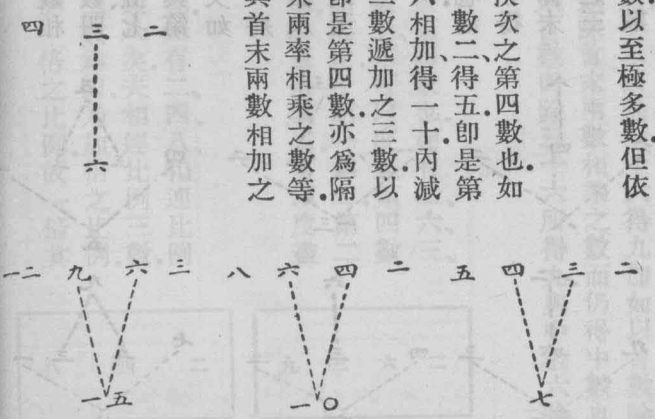 數以至極多數.但依
次次之第四數也.如
數二、得五.卽是第
六相加得一十.內減
三數遞加之三數.以
卽是第四數.亦爲隔
乘兩率相乘之數等.
與首末兩數相加之
二 三 四
六
二 三 四 五
七
二 四 六 八
一〇
三 六 九 一二
一五